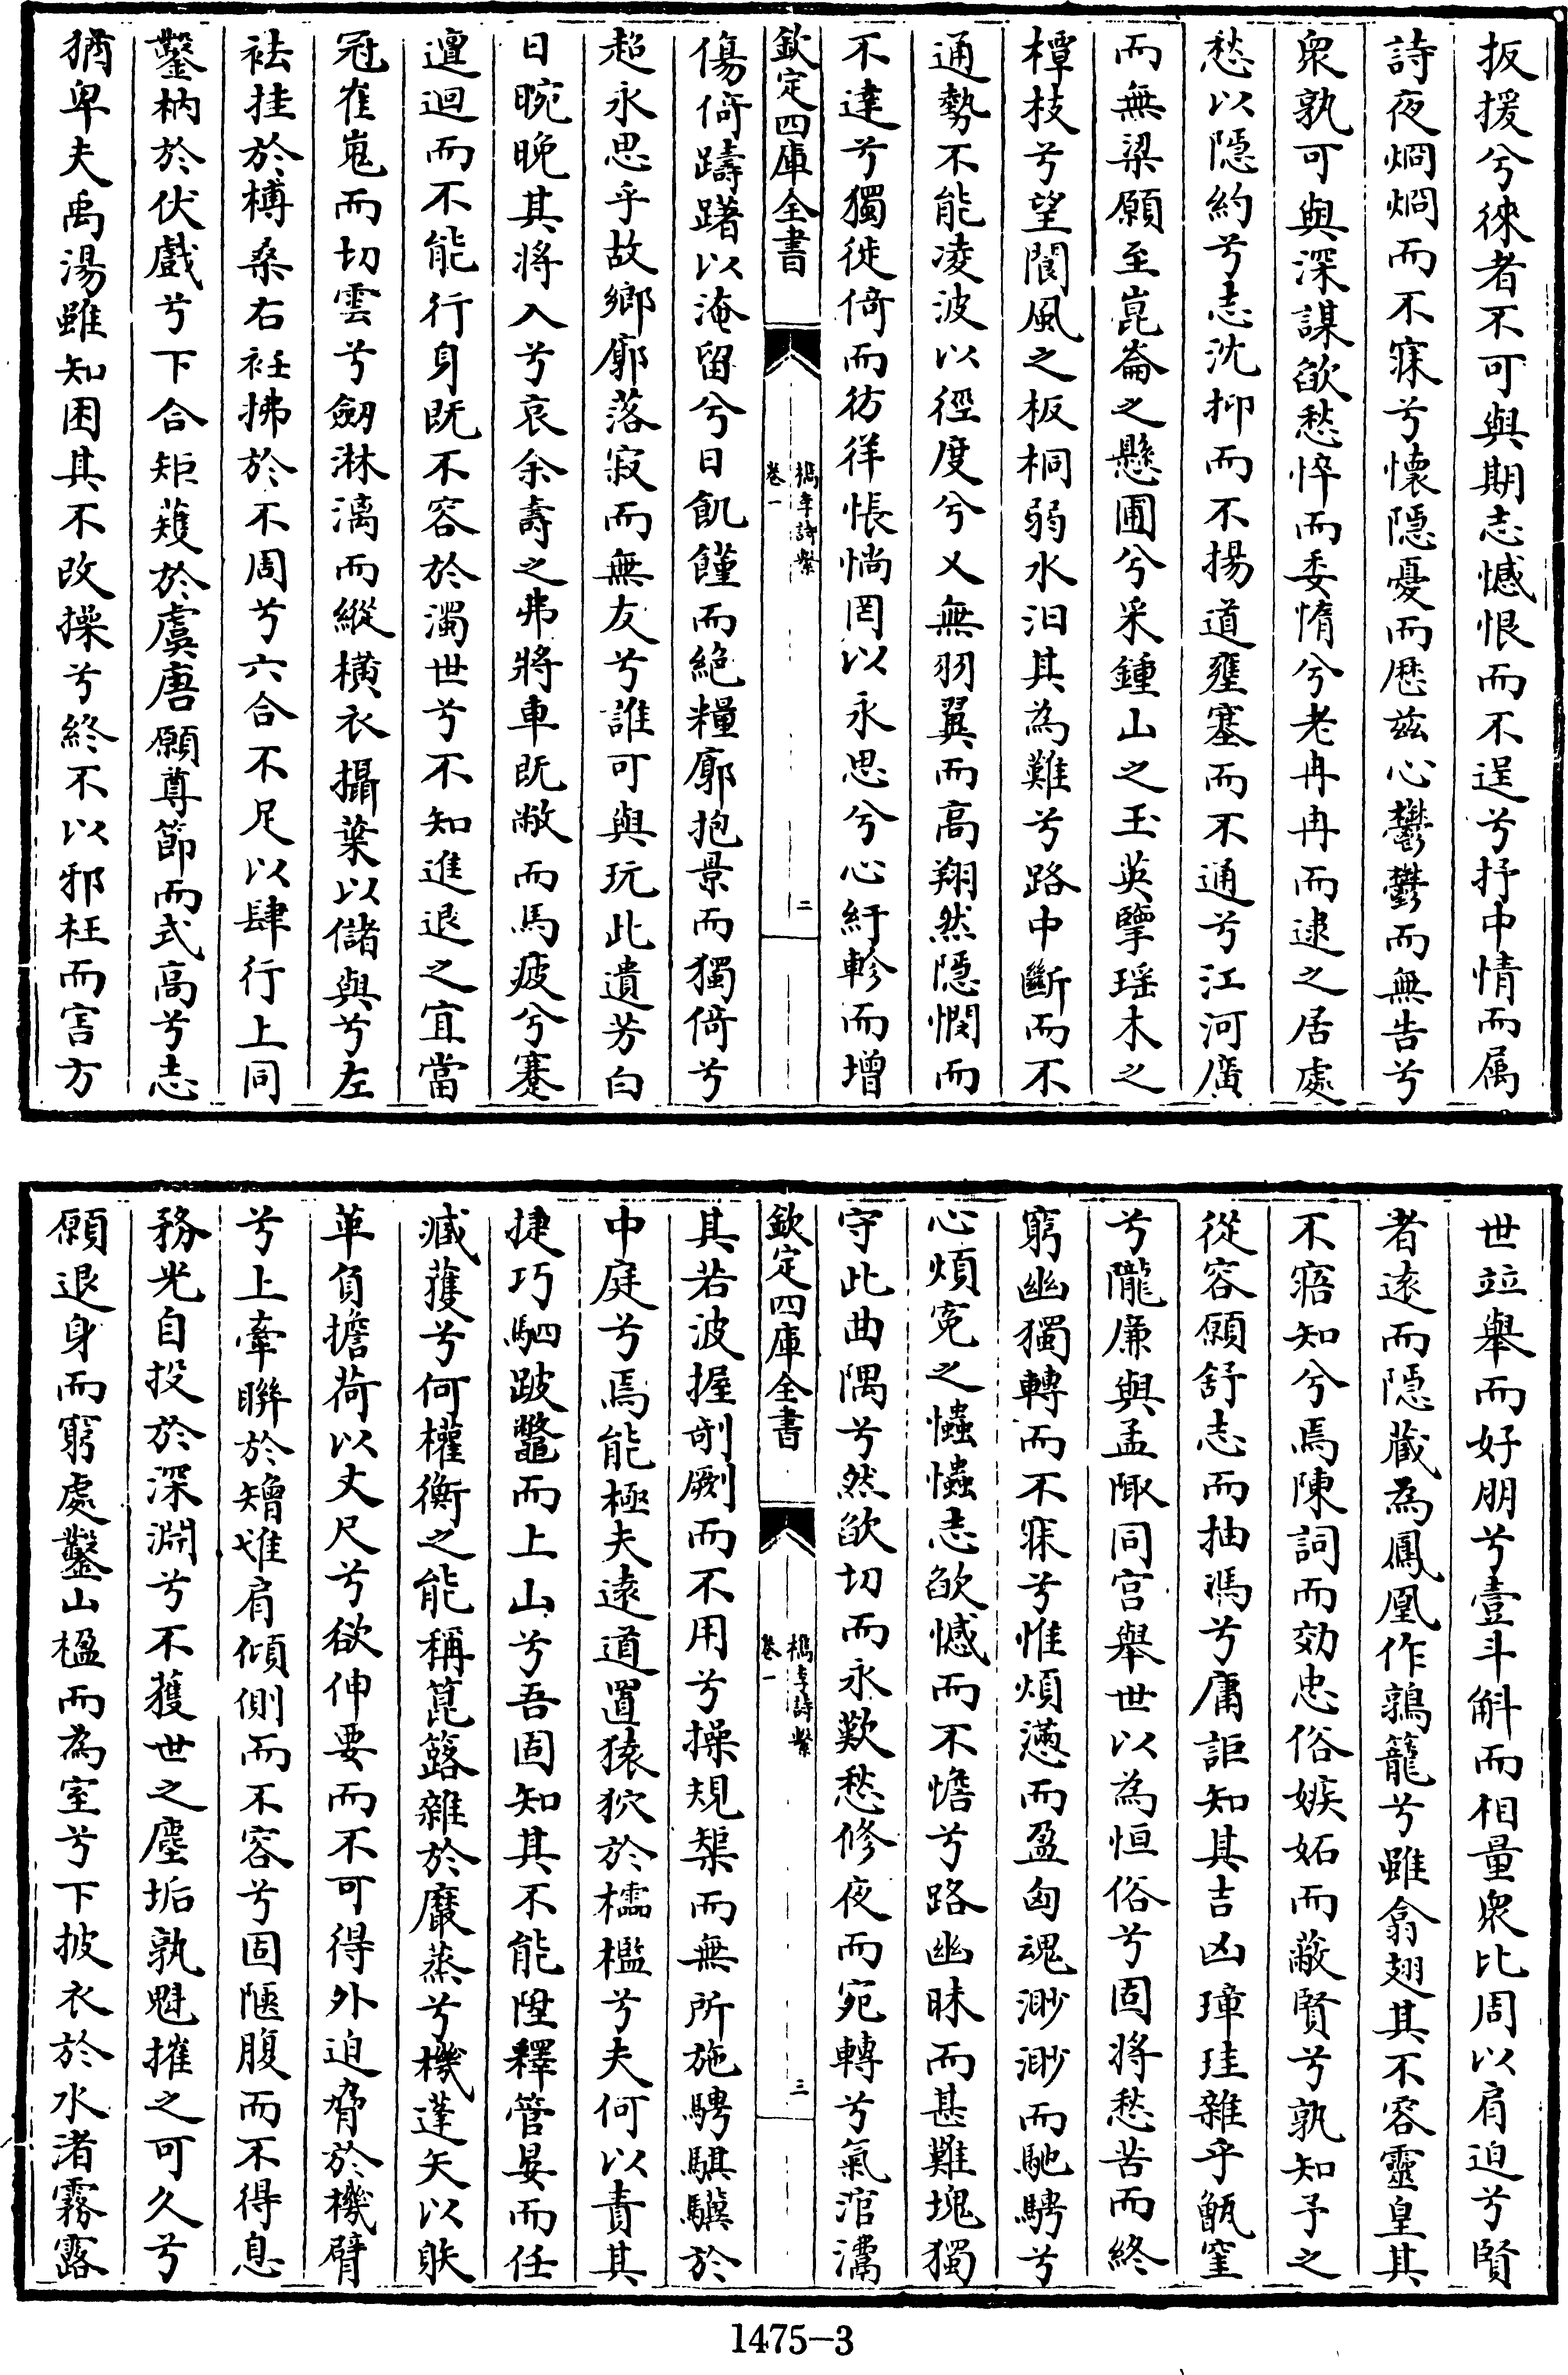 扳援兮徠者不可與期志憾恨而不逞兮抒中情而属
詩夜烱烱而不寐兮懷隱憂而歴兹心鬱鬱而無告兮
衆孰可與深謀欿愁悴而委惰兮老冉冉而逮之居處
愁以隱約兮志沈抑而不揚道壅塞而不通兮江河廣
而無梁願至崑崙之懸圃兮采鍾山之玉英擥瑶木之
橝枝兮望閬風之板桐弱水汨其為難兮路中斷而不
通勢不能凌波以徑度兮又無羽翼而高翔然隱憫而
不達兮獨徙倚而彷徉悵惝罔以永思兮心紆軫而增
欽定四庫全書
檇李詩繫
卷一
二
傷倚躊躇以淹留兮日飢饉而絶糧廓抱景而獨倚兮
超永思乎故鄉廓落寂而無友兮誰可與玩此遺芳白
日晼晚其將入兮哀余壽之弗將車既敝而馬疲兮蹇
邅迴而不能行身既不容於濁世兮不知進退之宜當
冠崔嵬而切雲兮劒淋漓而縱横衣攝葉以儲與兮左
袪挂於榑桑右衽拂於不周兮六合不足以肆行上同
鑿枘於伏戲兮下合矩矱於虞唐願尊節而式高兮志
猶卑夫禹湯雖知困其不改操兮終不以邪枉而害方
世竝舉而好朋兮壹斗斛而相量衆比周以肩迫兮賢
者逺而隱藏為鳳凰作鶉籠兮雖翕翅其不容靈皇其
不寤知兮焉陳詞而効忠俗嫉妬而蔽賢兮孰知予之
從容願舒志而抽馮兮庸詎知其吉凶璋珪雜乎甑窐
兮隴廉與孟陬同宫舉世以為恒俗兮固將愁苦而終
窮幽獨轉而不寐兮惟煩懣而盈匈魂渺渺而馳騁兮
心煩寃之忡忡志欿憾而不憺兮路幽昧而甚難塊獨
守此曲隅兮然欿切而永歎愁修夜而宛轉兮氣涫灊
欽定四庫全書
檇李詩繫
卷一
三
其若波握剞劂而不用兮操規榘而無所施騁騏驥於
中庭兮焉能極夫逺道置猿狖於櫺檻兮夫何以責其
捷巧駟跛鼈而上山兮吾固知其不能陞釋管晏而任
臧獲兮何權衡之能稱箟簬雜於黀蒸兮機蓬矢以䠶
革負擔荷以丈尺兮欲伸要而不可得外迫脅於機臂
兮上牽聮於矰隿肩傾側而不容兮固陿腹而不得息
務光自投於深淵兮不獲世之塵垢孰魁摧之可久兮
願退身而窮處鑿山楹而為室兮下披衣於水渚霧露
1475-3